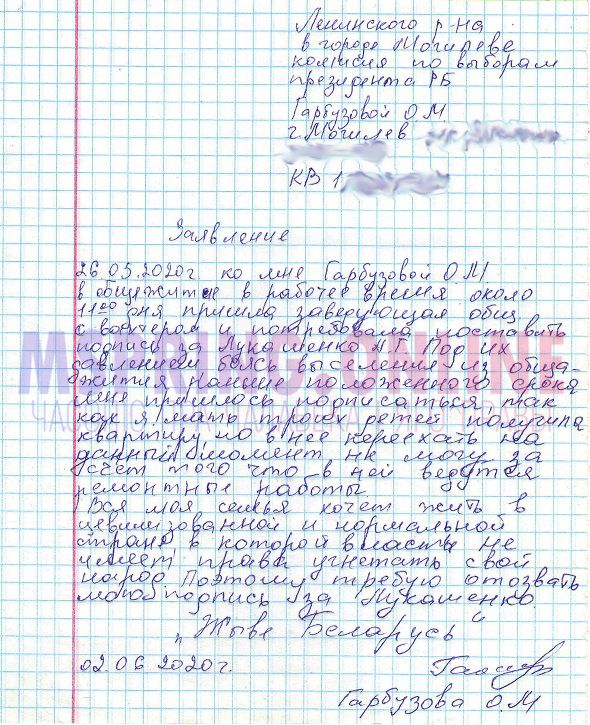 Ленинского р-на
в городе Могилеве
комисия по выборам
президента РБ
Гарбузовой О.М
г. Могилев
КВ 1
Заявление
26.05.2020г. ко мне Гарбузовой О.М
в общежитие в рабочее время около
11⁰⁰ дня пришла заведующая общ.
с вахтером и потребовала поставить
подпись за Лукашенко А.Г. Под их
давлением боясь выселения из обще-
жития раньше положенного срока
мне пришлось подписаться, так
как я мать троих детей получила
квартиру, но в нее переехать на
данный момент не могу за
счет того что в ней ведутся
ремонтные работы
Вся моя семья хочет жить в
цевилизованной и нормальной
стране в которой власть не
имеет права угнетать свой
народ. Поэтому требую отозвать
мою подпись за Лукашенко.
"Жыве Беларусь"
02.06.2020г.
Гарбузова О.М